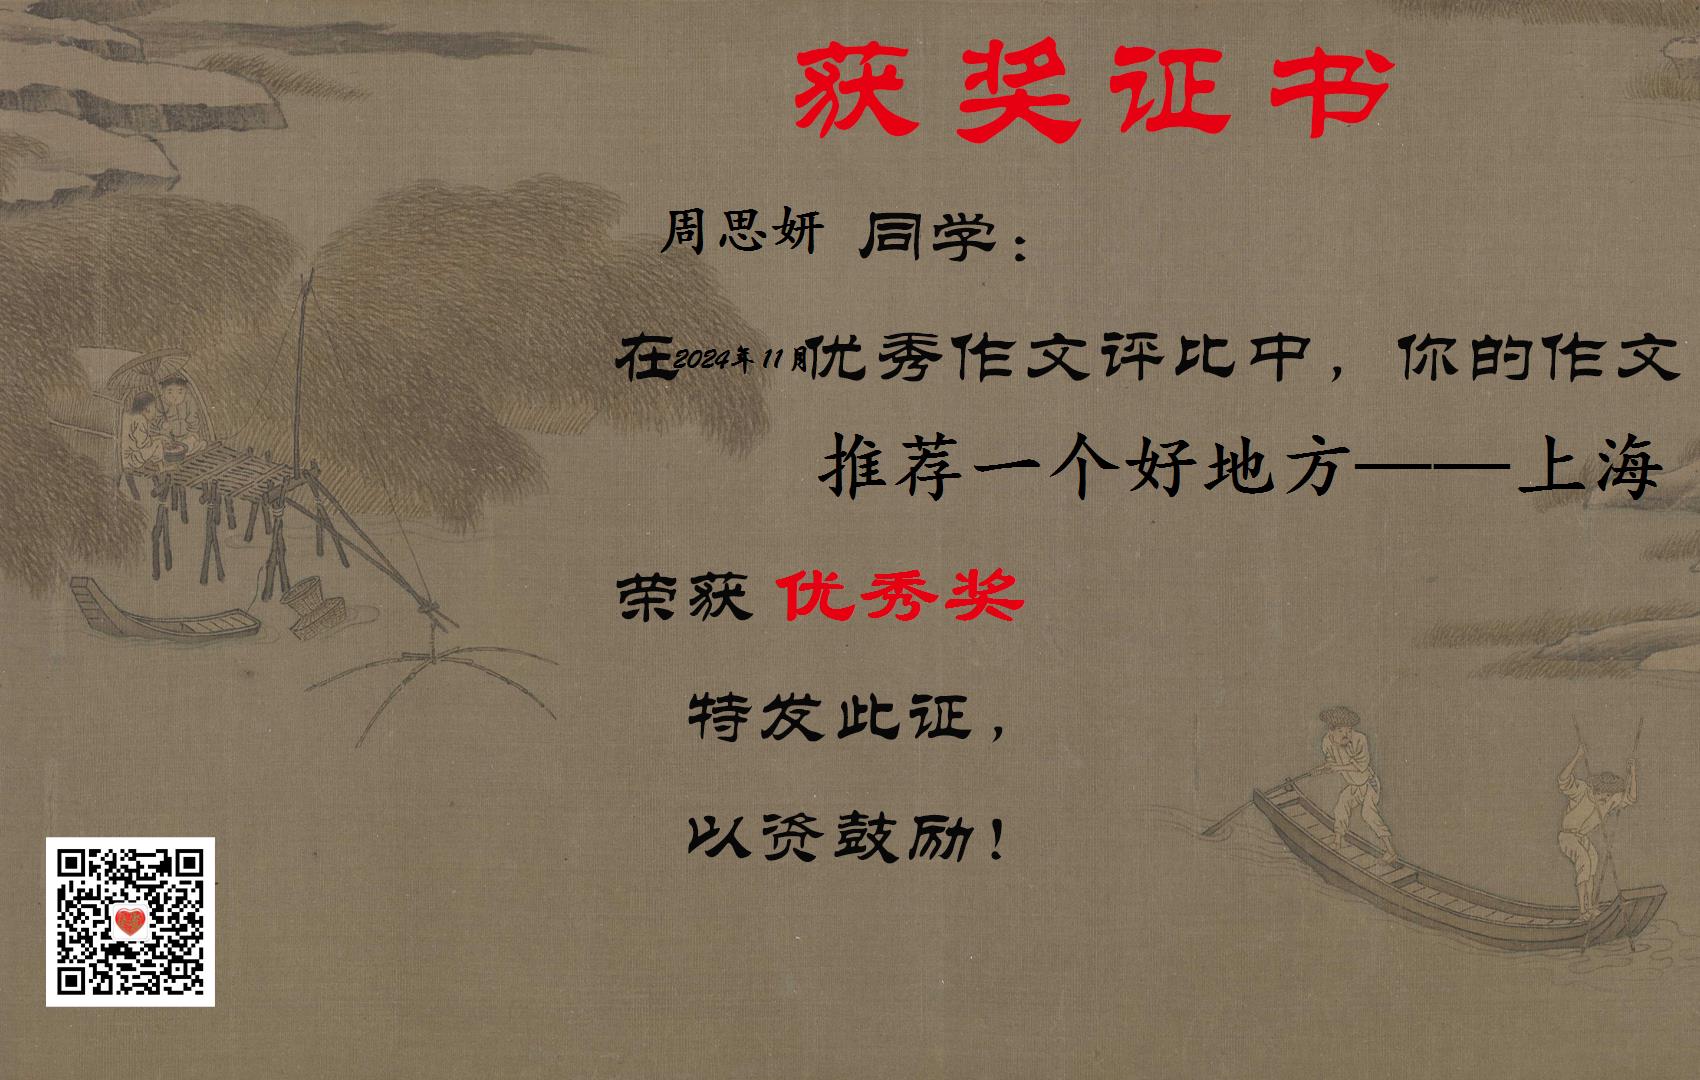 获奖证书
周思妍 同学：
在2024年11月优秀作文评比中，你的作文
推荐一个好地方——上海
荣获 优秀奖
特发此证，
以资鼓励！